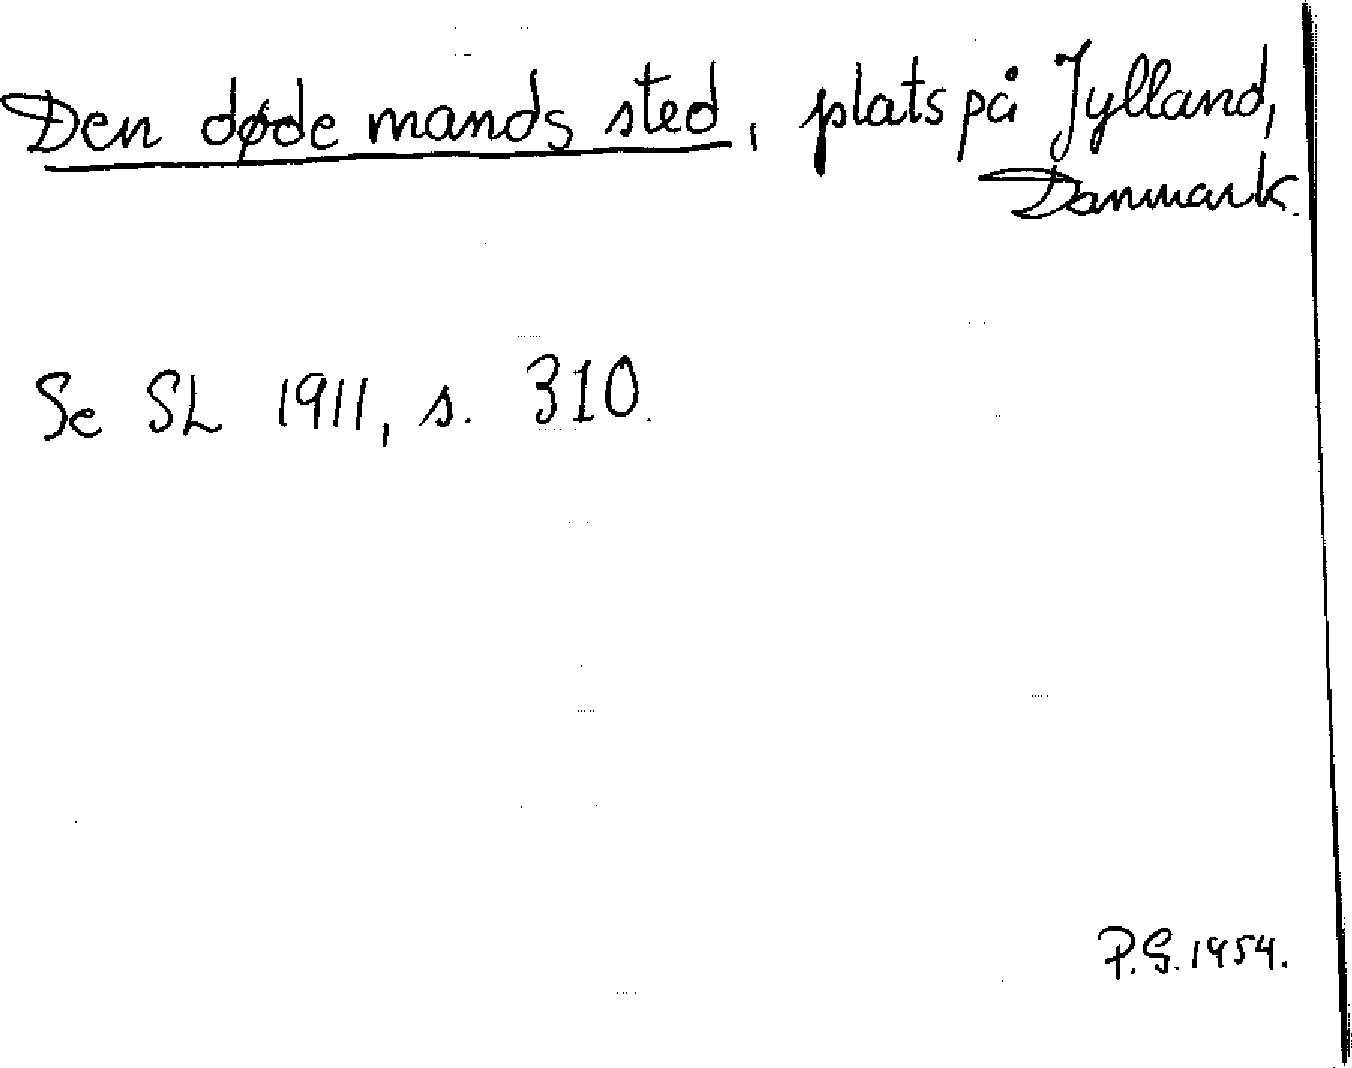 Den døde mands sted, plats på Jylland,
Danmark.
Se SL 1911, s. 310.
P.G. 1954.